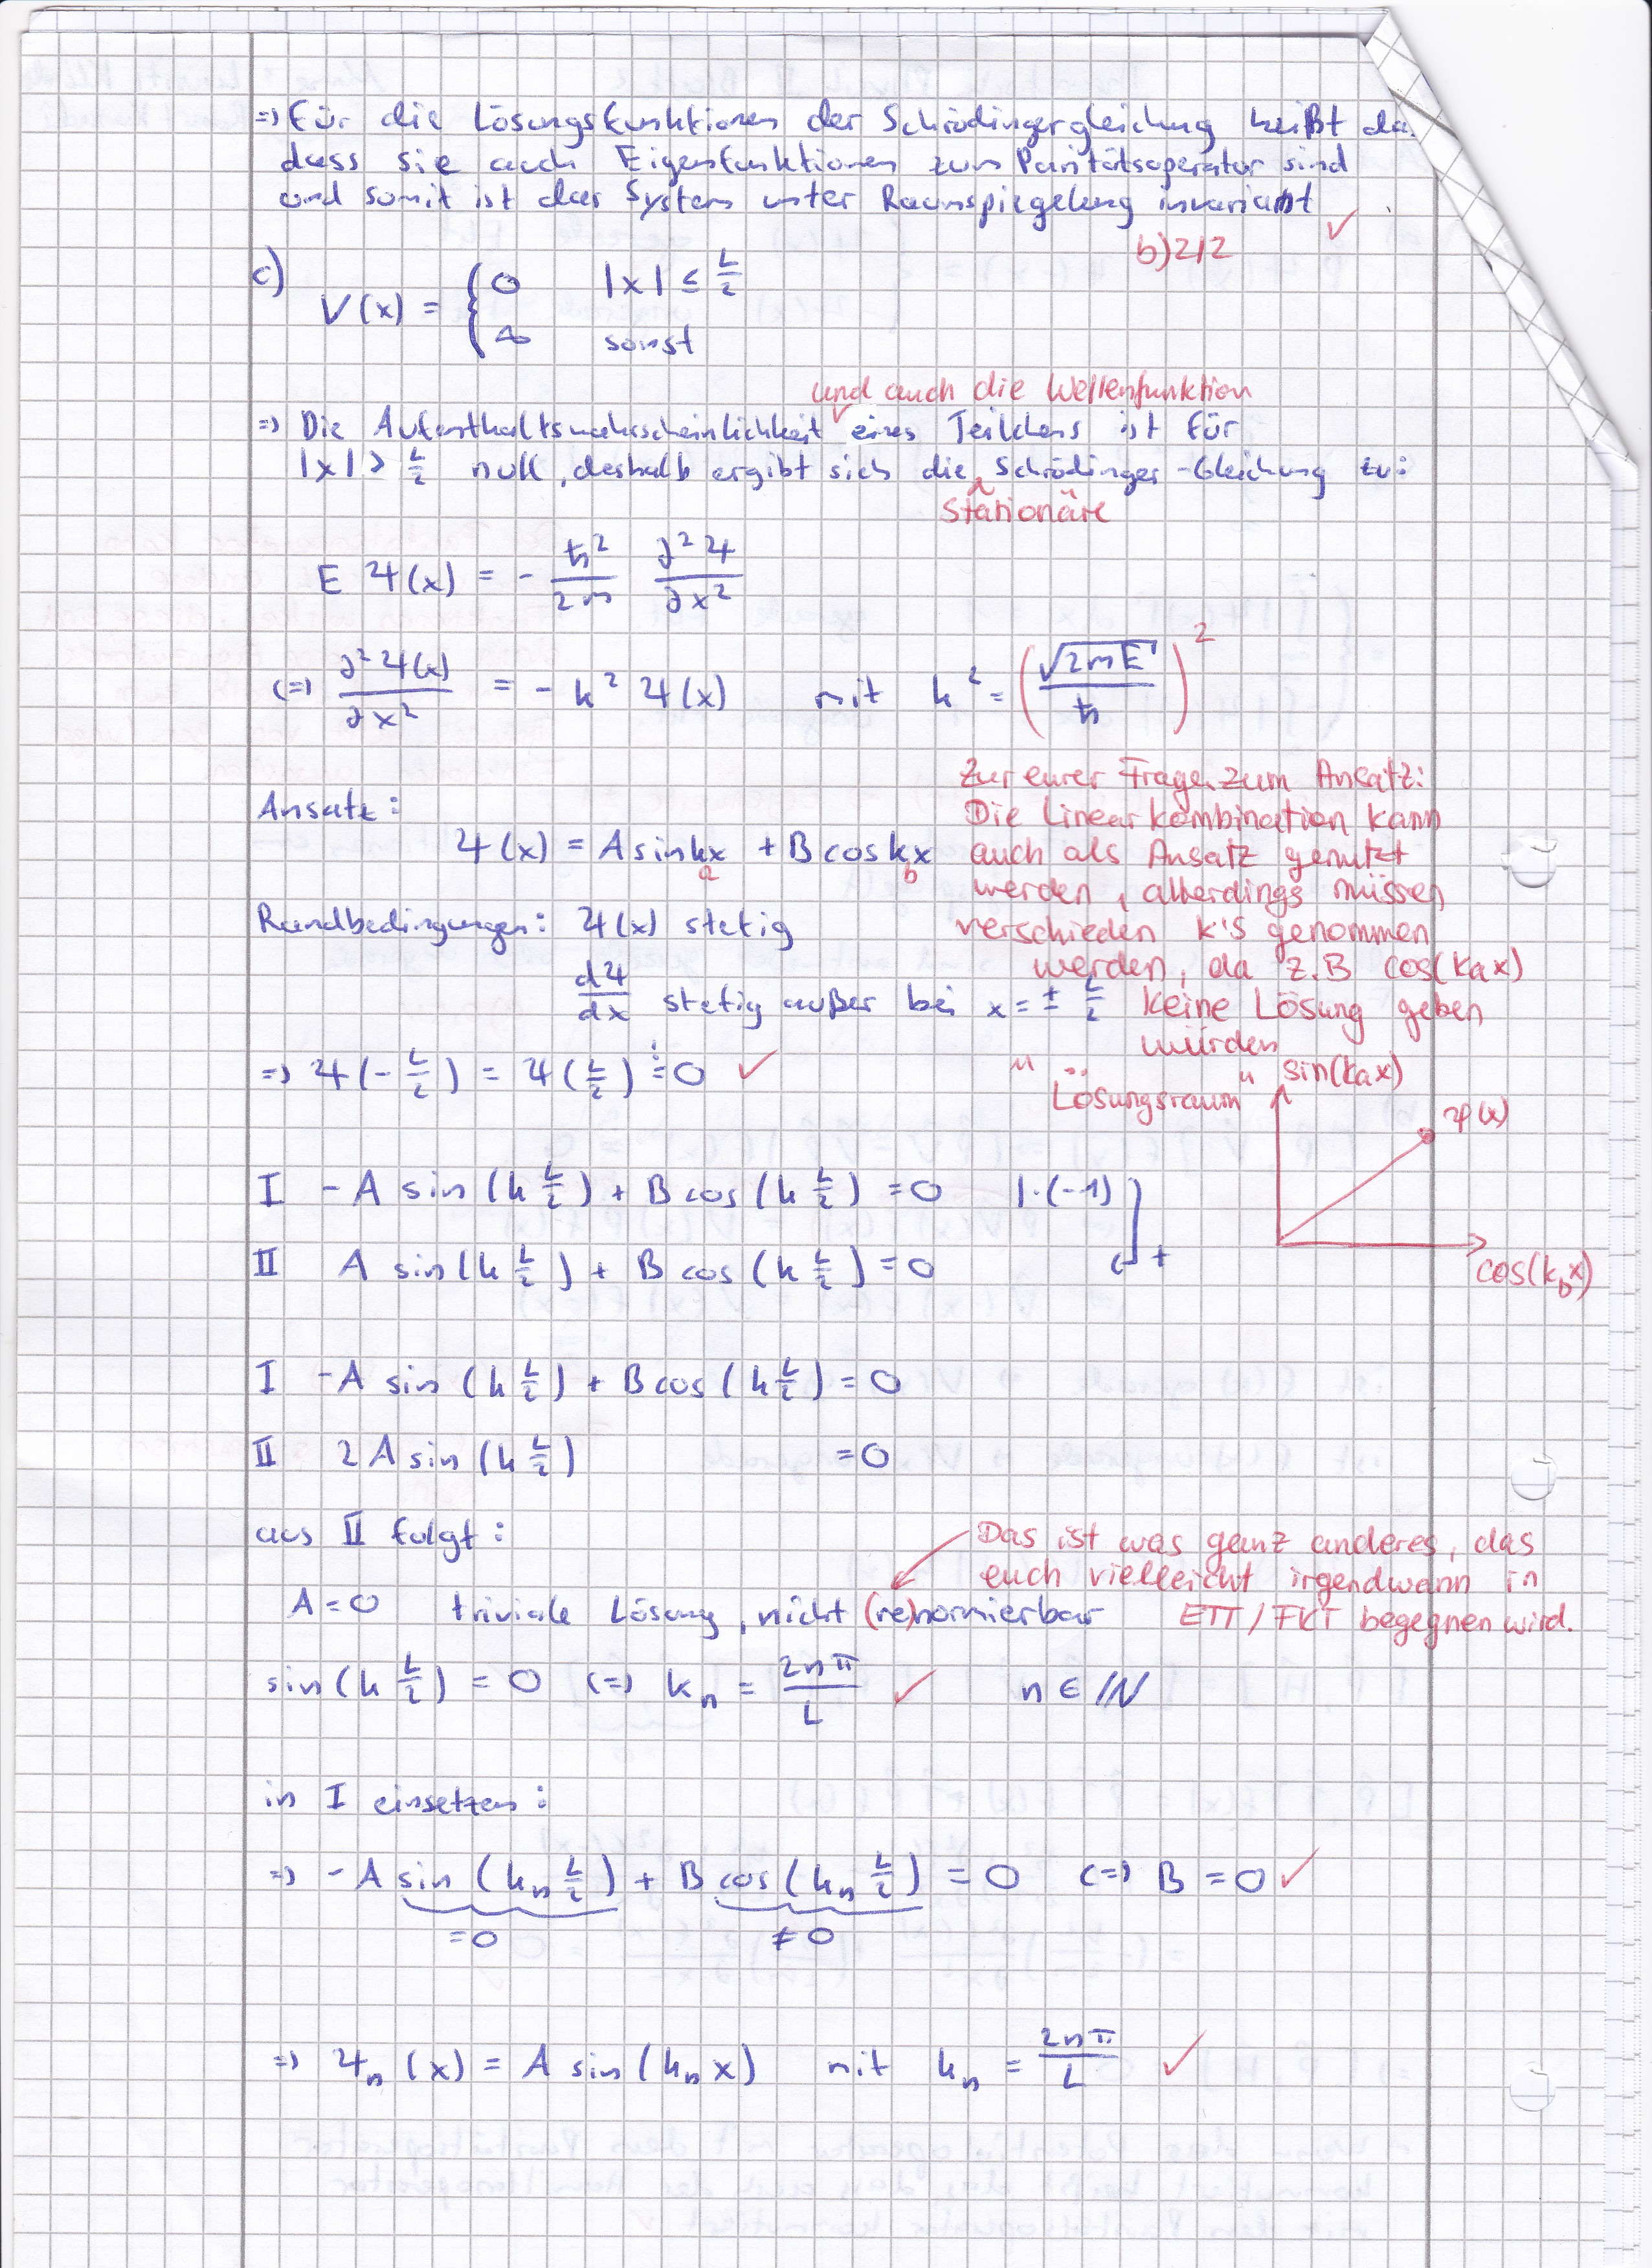 => Für die Lösungsfunktionen der Schrödingergleichung heißt da
dass sie auch Eigenfunktionen zum Paritätsoperator sind
und somit ist das System unter Raumspiegelung invariant ✓
b) 2/2
c) V(x) = { 0 |x| ≤ L/2
∞ sonst
und auch die Wellenfunktion
=> Die Aufenthaltswahrscheinlichkeit eines Teilchens ist für
|x| > L/2 null, deshalb ergibt sich die Schrödinger-Gleichung zu:
Stationäre
E Ψ(x) = - ħ²/2m ∂²Ψ/∂x²
<=> ∂²Ψ(x)/∂x² = - k² Ψ(x) mit k² = (√2mE/ħ)²
Ansatz:
Ψ(x) = A sin kx + B cos kx
a b
Zur eurer Frage zum Ansatz:
Die Linearkombination kann
auch als Ansatz genutzt
werden, allerdings müssen
verschieden k's genommen
werden, da z.B cos(kax)
keine Lösung geben
würden
Randbedingungen: Ψ(x) stetig
dΨ/dx stetig außer bei x = ± L/2
=> Ψ(-L/2) = Ψ(L/2) != 0 ✓
"Lösungsraum"
sin(kax)
ψ(x)
cos(kbx)
I -A sin(k L/2) + B cos(k L/2) = 0 |·(-1)
II A sin(k L/2) + B cos(k L/2) = 0 +
I -A sin(k L/2) + B cos(k L/2) = 0
II 2A sin(k L/2) = 0
aus II folgt:
Das ist was ganz anderes, das
euch vielleicht irgendwann in
ETT/FKT begegnen wird.
A = 0 triviale Lösung, nicht (re)normierbar
sin(k L/2) = 0 <=> kn = 2nπ/L ✓ n ∈ ℕ
in I einsetzen:
=> -A sin(kn L/2) + B cos(kn L/2) = 0 <=> B = 0 ✓
=0 ≠0
=> Ψn(x) = A sin(kn x) mit kn = 2nπ/L ✓